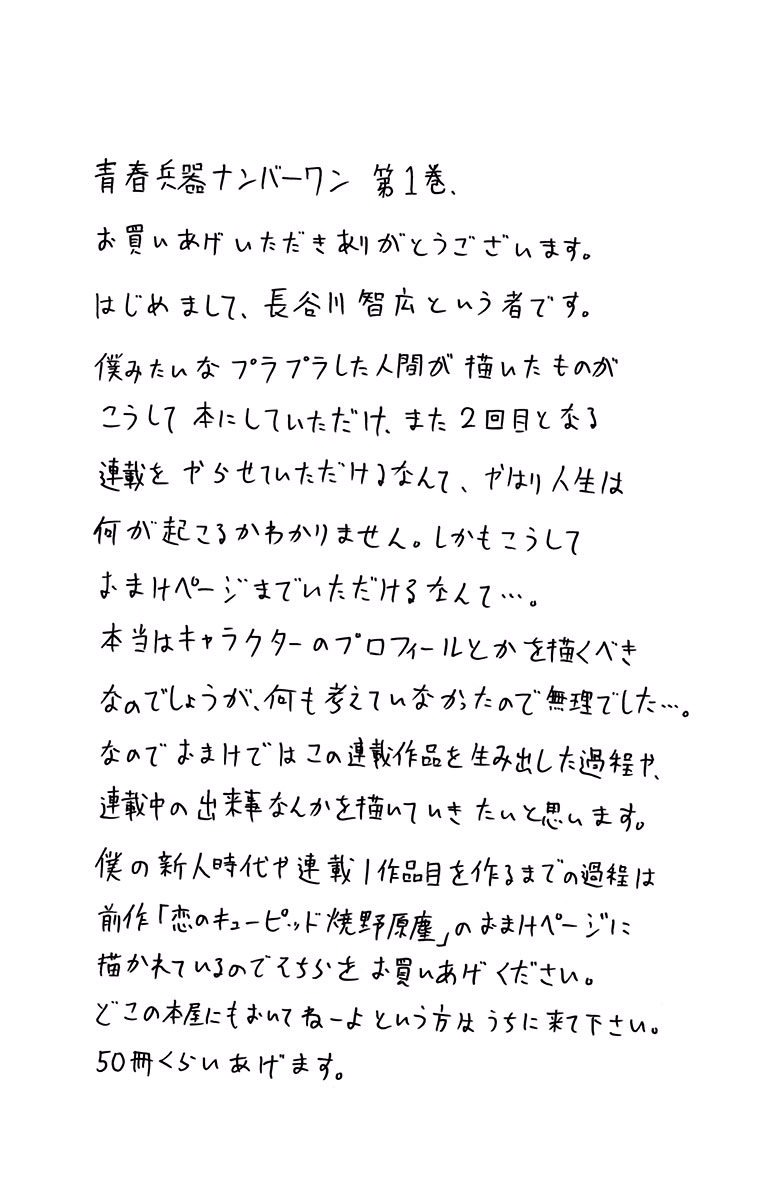 青春兵器ナンバーワン 第1巻、
お買いあげいただきありがとうございます。
はじめまして、長谷川智広という者です。
僕みたいなプラプラした人間が描いたものが
こうして本にしていただけ、また2回目となる
連載をやらせていただけるなんて、やはり人生は
何が起こるかわかりません。しかもこうして
おまけページまでいただけるなんて…。
本当はキャラクターのプロフィールとかを描くべき
なのでしょうが、何も考えていなかったので無理でした…。
なのでおまけではこの連載作品を生み出した過程や、
連載中の出来事なんかを描いていきたいと思います。
僕の新人時代や連載1作品目を作るまでの過程は
前作「恋のキューピッド焼野原塵」のおまけページに
描かれているのでそちらをお買いあげください。
どこの本屋にもおいてねーよという方はうちに来て下さい。
50冊くらいあげます。